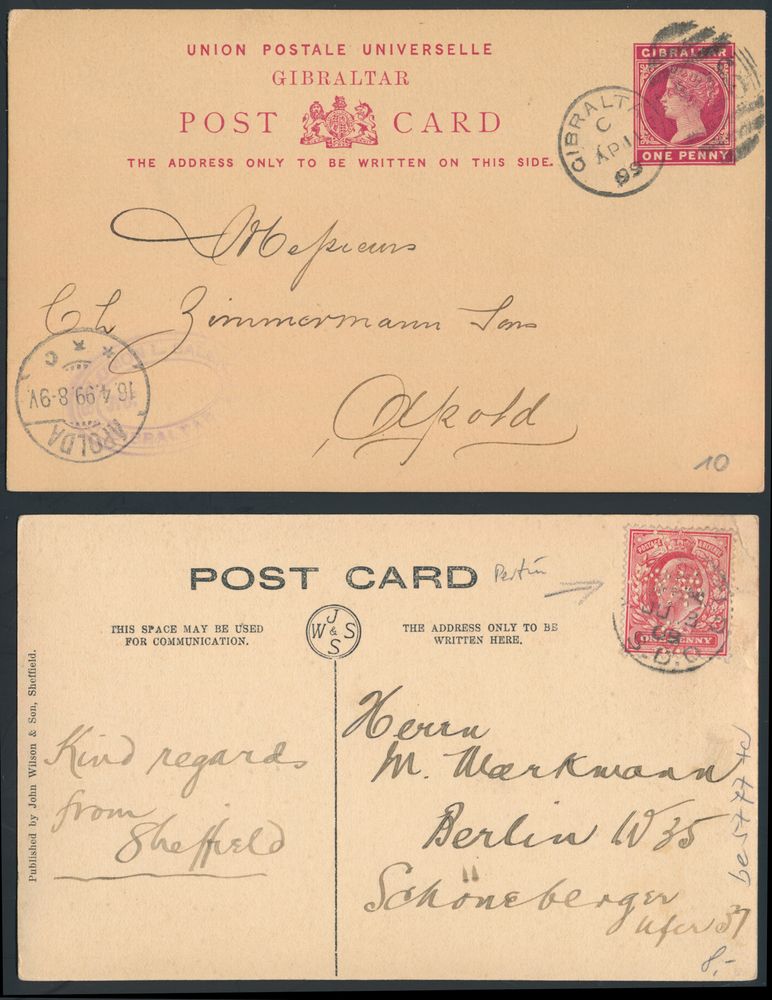 UNION POSTALE UNIVERSELLE
GIBRALTAR
POST CARD
THE ADDRESS ONLY TO BE WRITTEN ON THIS SIDE.
GIBRALTAR
ONE PENNY
GIBRALTA
C
AP 11
99
Messieurs
Ch Zimmermann Sons
Apold
APOLDA
16.4.99.8-9V.
* * C
GIBRALTAR
10
POST CARD
Perfin
THIS SPACE MAY BE USED
FOR COMMUNICATION.
J
W & S
S
S
THE ADDRESS ONLY TO BE
WRITTEN HERE.
POSTAGE
ONE PENNY
S.B.O
Published by John Wilson & Son, Sheffield.
Kind regards
from
Sheffield
Herrn
M. Warkmann
Berlin W 35
Schöneberger
Ufer 37
8,-